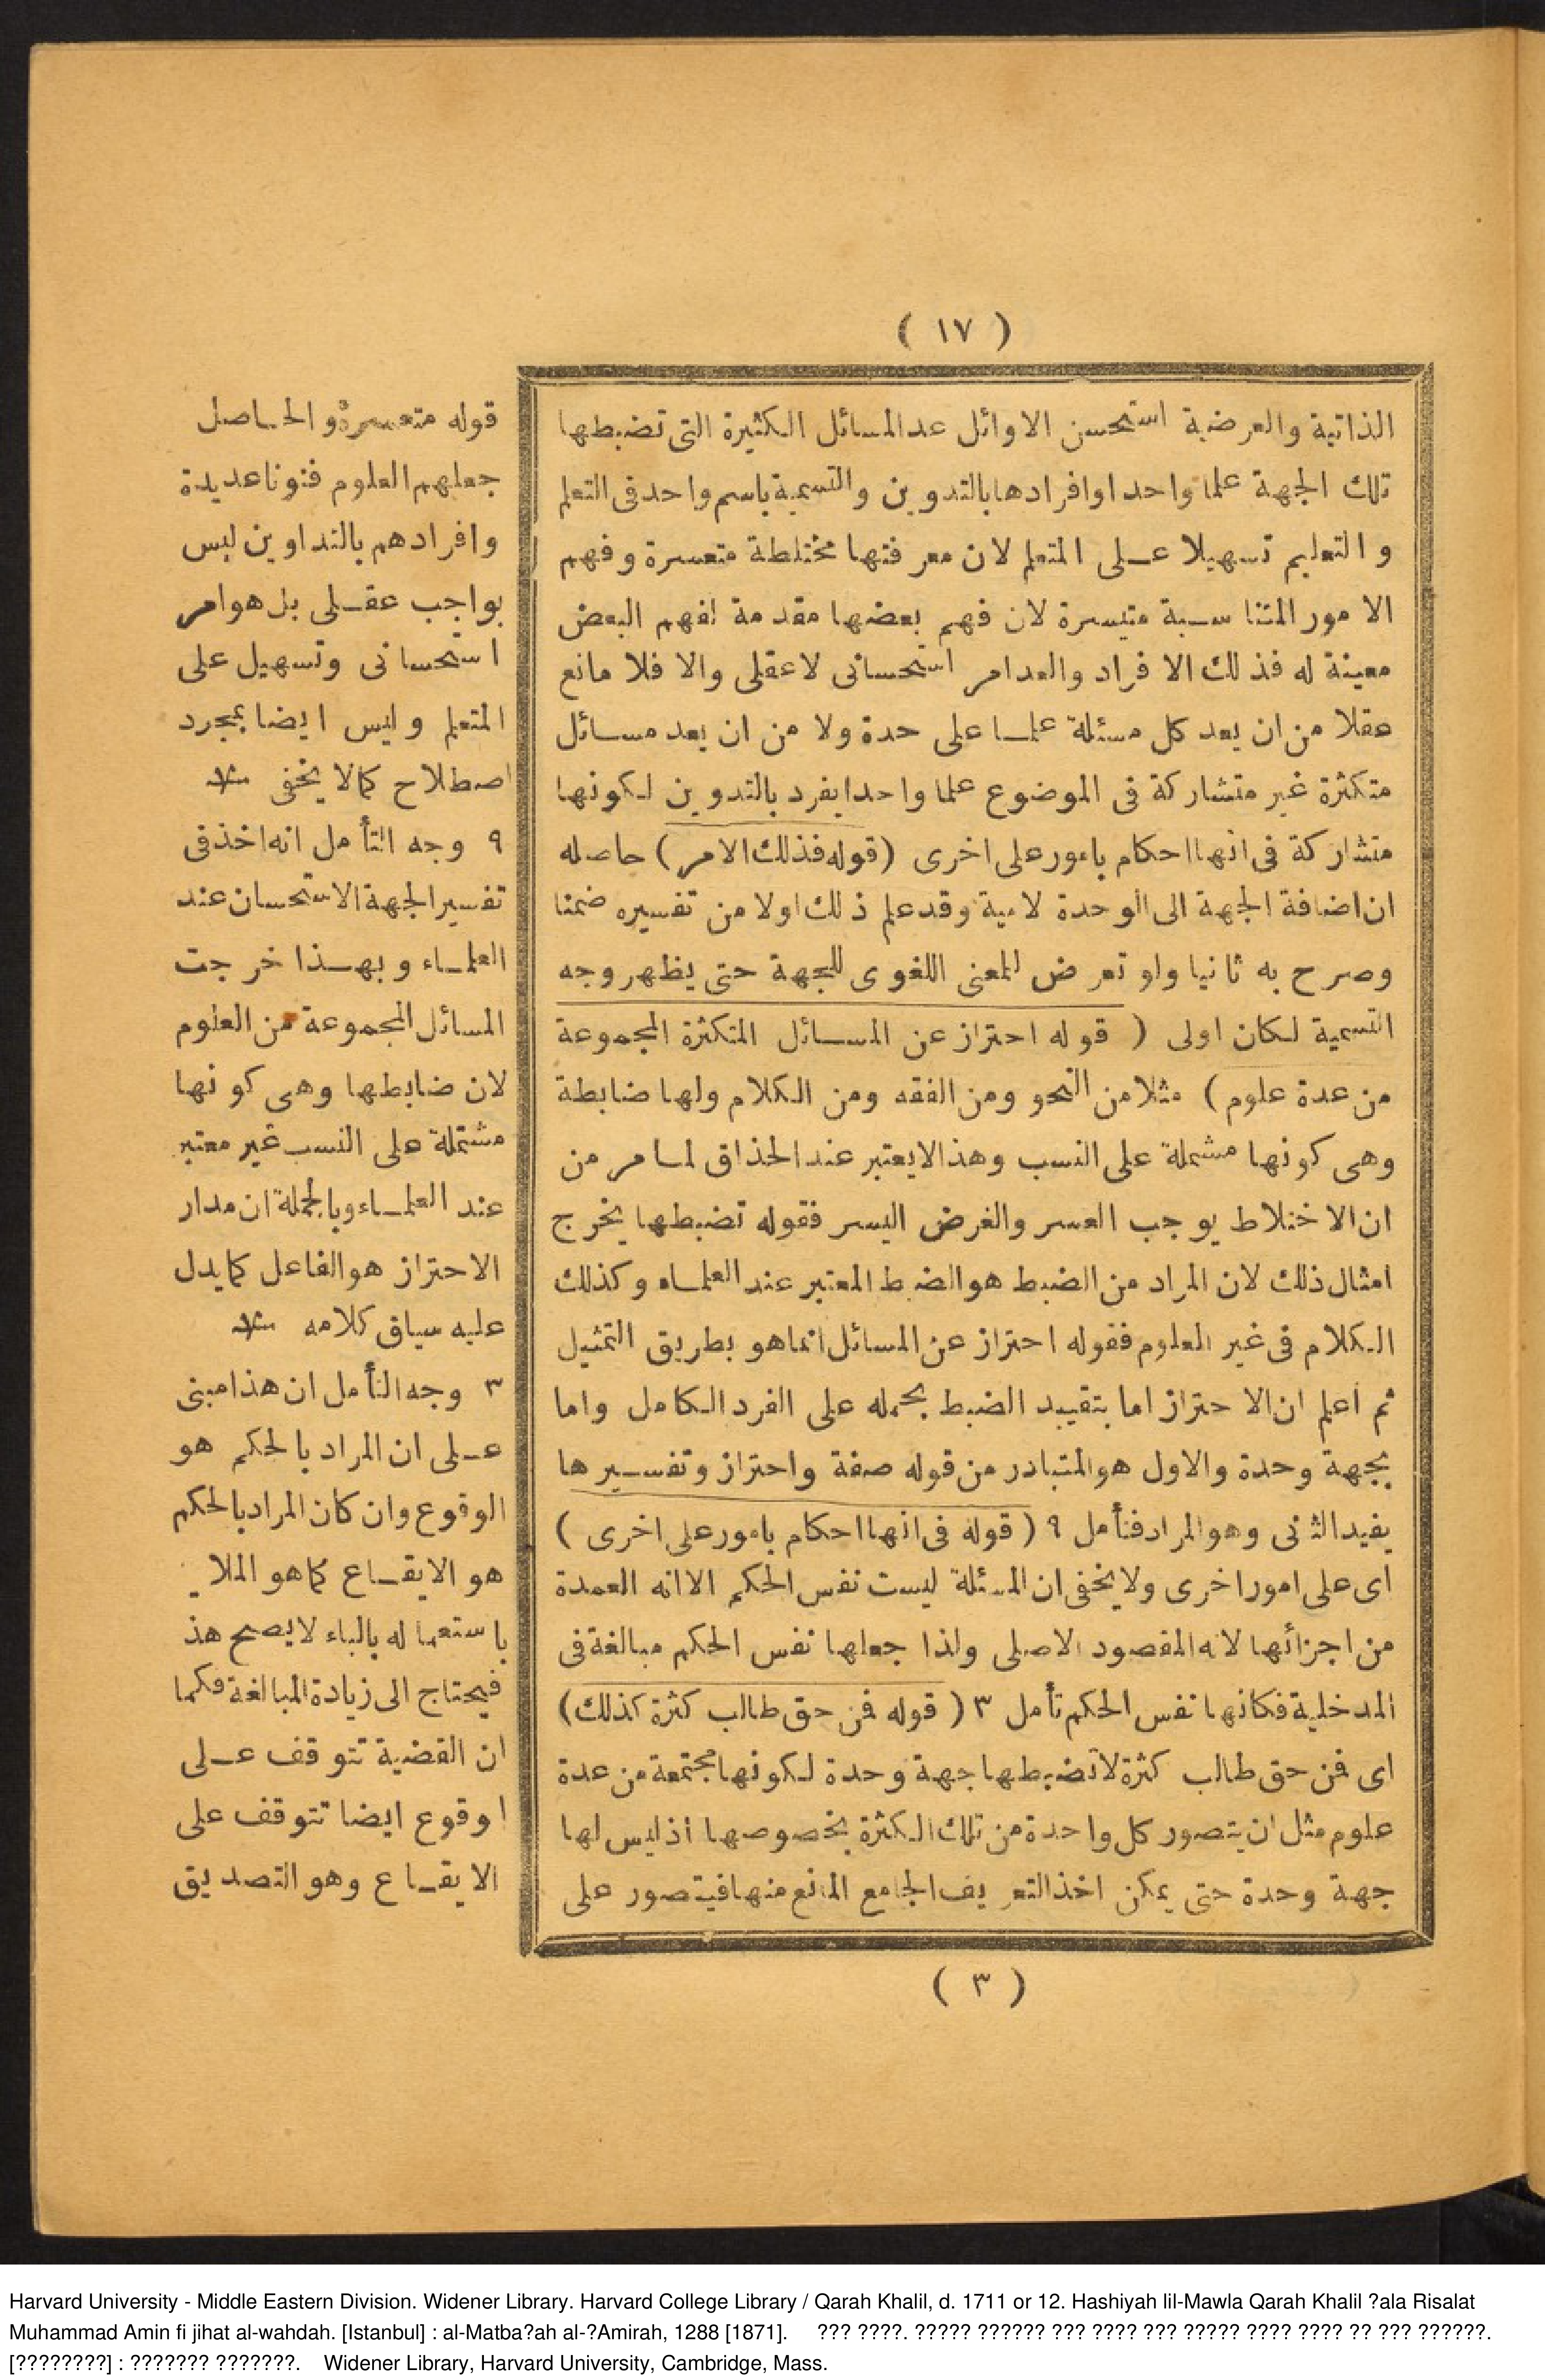 ( ١٧ )
الذاتية والعرضية استحسن الاوائل عد المسائل الكثيرة التى تضبطها
تلك الجهة علما واحدا وافرادها بالتدوين والتسمية باسم واحد فى التعلم
والتعليم تسهيلا على المتعلم لان معرفتها مختلطة متعسرة وفهم
الامور المتناسبة متيسرة لان فهم بعضها مقدمة لفهم البعض
معينة له فذلك الافراد والعد امر استحسانى لا عقلى والا فلا مانع
عقلا من ان يعد كل مسئلة علما على حدة ولا من ان يعد مسائل
متكثرة غير متشاركة فى الموضوع علما واحدا يفرد بالتدوين لكونها
متشاركة فى انها احكام بامور على اخرى (قوله فذلك الامر) حاصله
ان اضافة الجهة الى الوحدة لامية وقد علم ذلك اولا من تفسيره ضمنا
وصرح به ثانيا ولو تعرض لمعنى اللغوى للجهة حتى يظهر وجه
التسمية لكان اولى ( قوله احتراز عن المسائل المتكثرة المجموعة
من عدة علوم) مثلا من النحو ومن الفقه ومن الكلام ولها ضابطة
وهى كونها مشتملة على النسب وهذا لا يعتبر عند الحذاق لما مر من
ان الاختلاط يوجب العسر والغرض اليسر فقوله تضبطها يخرج
امثال ذلك لان المراد من الضبط هو الضبط المعتبر عند العلماء وكذلك
الكلام فى غير العلوم فقوله احتراز عن المسائل انما هو بطريق التمثيل
ثم اعلم ان الاحتراز اما بتقييد الضبط بحمله على الفرد الكامل واما
بجهة وحدة والاول هو المتبادر من قوله صفة واحتراز وتفسيرها
يفيد الثانى وهو المراد فتأمل ٩ (قوله فى انها احكام بامور على اخرى )
اى على امور اخرى ولا يخفى ان المسئلة ليست نفس الحكم الا انه العمدة
من اجزائها لانه المقصود الاصلى ولذا جعلها نفس الحكم مبالغة فى
المدخلية فكانها نفس الحكم تأمل ٣ ( قوله فن حق طالب كثرة كذلك)
اى فن حق طالب كثرة لا تضبطها جهة وحدة لكونها مجتمعة من عدة
علوم مثل ان يتصور كل واحدة من تلك الكثرة بخصوصها اذ ليس لها
جهة وحدة حتى يمكن اخذ التعريف الجامع المانع منها فيتصور على
( ٣ )
قوله متعسرة والحاصل
جعلهم العلوم فنونا عديدة
وافرادهم بالتداوين ليس
بواجب عقلى بل هو امر
استحسانى وتسهيل على
المتعلم وليس ايضا بمجرد
اصطلاح كما لا يخفى
٩ وجه التأمل انه اخذ فى
تفسير الجهة الاستحسان عند
العلماء وبهذا خرجت
المسائل المجموعة من العلوم
لان ضابطها وهى كونها
مشتملة على النسب غير معتبر
عند العلماء وبالجملة ان مدار
الاحتراز هو الفاعل كما يدل
عليه سياق كلامه
٣ وجه التأمل ان هذا مبنى
على ان المراد بالحكم هو
الوقوع وان كان المراد بالحكم
هو الايقاع كما هو
باستعماله بالباء لا يصح
فيحتاج الى زيادة المبالغة فكما
ان القضية تتوقف على
وقوع ايضا تتوقف على
الايقاع وهو التصديق
Harvard University - Middle Eastern Division. Widener Library. Harvard College Library / Qarah Khalil, d. 1711 or 12. Hashiyah lil-Mawla Qarah Khalil ?ala Risalat
Muhammad Amin fi jihat al-wahdah. [Istanbul] : al-Matba?ah al-?Amirah, 1288 [1871]. ??? ????. ????? ?????? ??? ???? ??? ????? ???? ???? ?? ??? ??????.
[????????] : ??????? ???????. Widener Library, Harvard University, Cambridge, Mass.